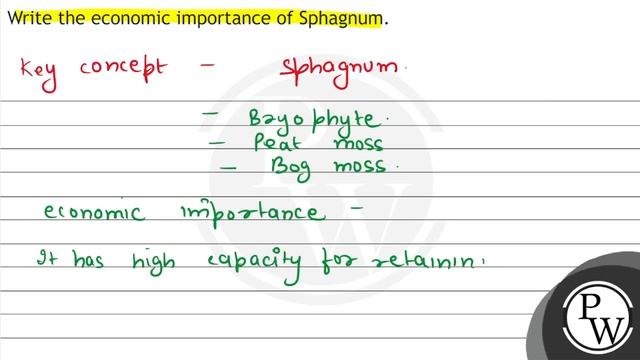 Write the economic importance of Sphagnum.
Key concept - Sphagnum.
- Bryophyte.
- Peat moss
- Bog moss.
economic importance -
It has high capacity for retainin
PW
PW